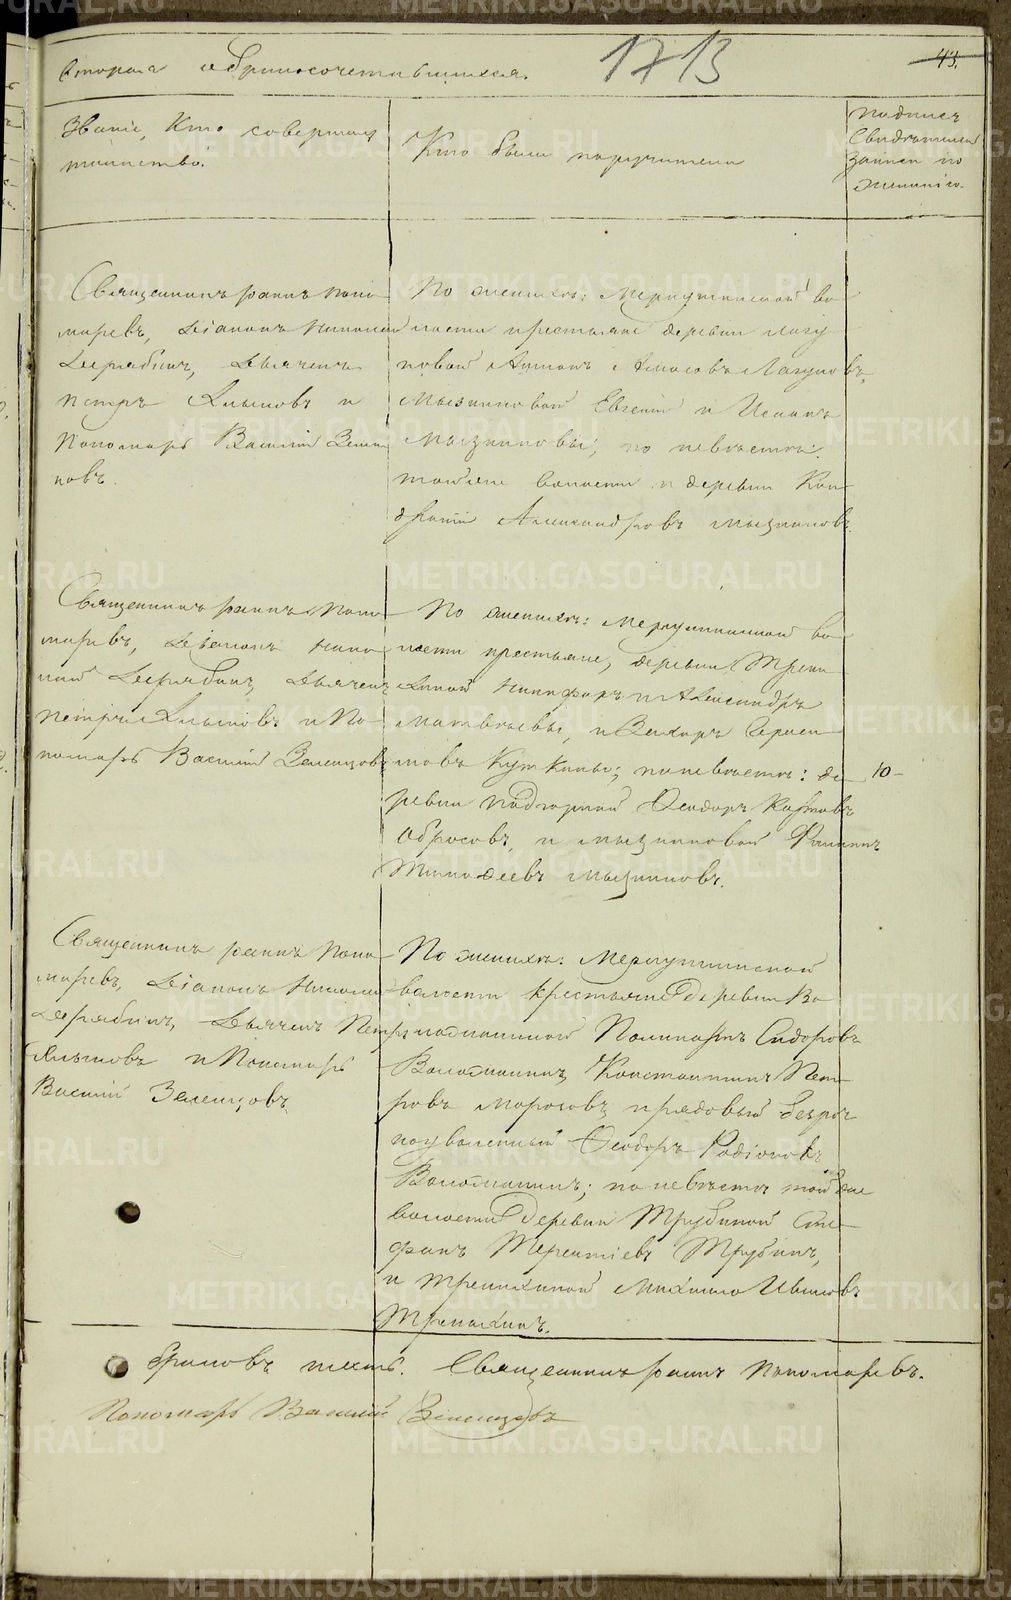 вторая о бракосочетавшихся.
1713
43.
Званіе, Кто совершалъ
таинство.
Кто были поручители
подпись
Свидѣтелей
записи по
желанію.
Священникъ Іоаннъ Поно
маревъ, Діаконъ Николай
Дерябинъ, Дьячекъ
Петръ Хлыновъ и
Пономарь Василій Зелен
цовъ.
По женихѣ: Меркушинской во
лости крестьяне деревни Лагу
новой Антонъ Амосовъ Лагуновъ,
Мызниковой Евгеній и Иванъ
Мызниковы; по невѣстѣ:
тойже волости и деревни Кон
дратій Александровъ Мызниковъ.
Священникъ Іоаннъ Поно
маревъ, Діаконъ Нико
лай Дерябинъ, Дьячекъ
Петръ Хлыновъ и По-
номарь Василій Зеленцовъ
По женихѣ: Меркушинской во
лости крестьяне, деревни
Никифоръ и Александръ
Матвѣевы, и
Куткины; по невѣстѣ: де
ревни Подгорной Ѳеодоръ Карповъ
Обросовъ, и Мызниковой Филиппъ
Тимоѳеевъ Мызниковъ.
10
Священникъ Іоаннъ Поно
маревъ, Діаконъ Николай
Дерябинъ, Дьячекъ Петръ
Хлыновъ и Пономарь
Василій Зеленцовъ.
По женихѣ: Меркушинской
волости крестьяне деревни Во
ложаниной Поликарпъ Сидоровъ
Воложанинъ, Константинъ Пет-
ровъ Морозовъ и рядовый безсро
Ѳеодоръ Родіоновъ
Воложанинъ; по невѣстѣ тойже
волости деревни Трубиной Сте
фанъ Терентіевъ Трубинъ,
и Тренихиной Михаило Ивановъ
Тренихинъ.
браковъ шесть. Священникъ Іоаннъ Пономаревъ.
Пономарь Василій Зеленцовъ
METRIKI.GASO-URAL.RU